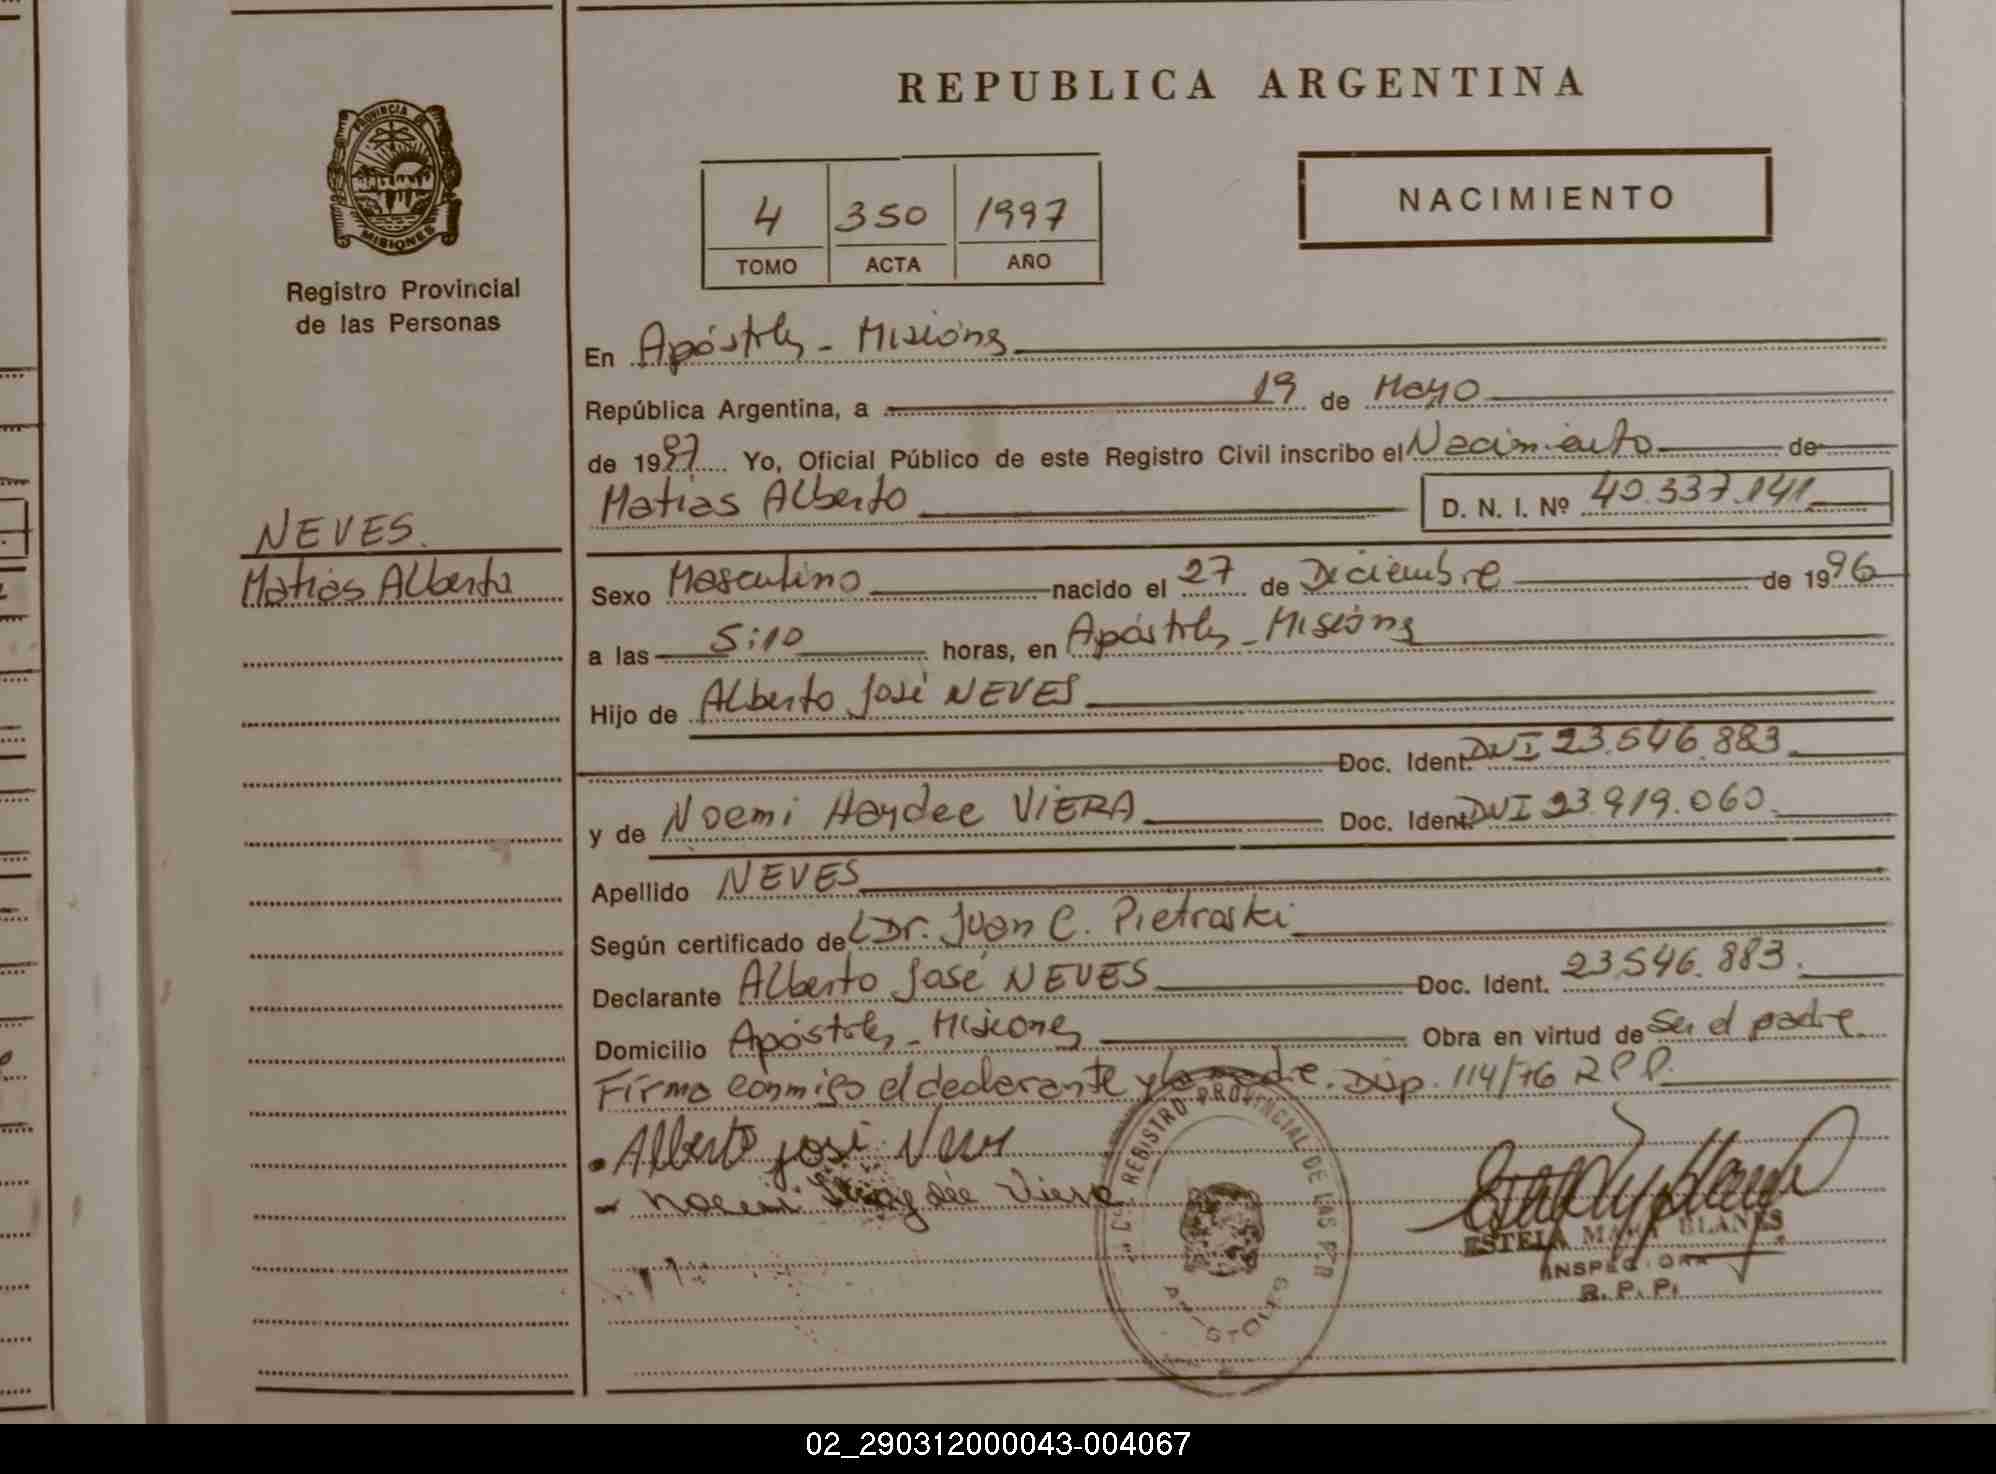 REPUBLICA ARGENTINA
PROVINCIA DE
MISIONES
Registro Provincial
de las Personas
4 350 1997
TOMO ACTA AÑO
NACIMIENTO
En Apóstoles - Misiones
República Argentina, a 19 de Mayo
de 1997 Yo, Oficial Público de este Registro Civil inscribo el Nacimiento de
Matias Alberto D. N. I. Nº 40.337.141
NEVES
Matias Alberto
Sexo Masculino nacido el 27 de Diciembre de 1996
a las 5:10 horas, en Apóstoles - Misiones
Hijo de Alberto José NEVES
Doc. Ident. DNI 23.546.883
y de Noemi Haydee VIERA Doc. Ident. DNI 23.919.060
Apellido NEVES
Según certificado de Dr. Juan C. Pietraski
Declarante Alberto José NEVES Doc. Ident. 23.546.883.
Domicilio Apóstoles - Misiones Obra en virtud de Ser el padre
Firma conmigo el declarante y la madre. Disp. 114/76 RPP.
Alberto josé Neves
Noemi Haydée Viera
REGISTRO PROVINCIAL DE LAS
ESTELA BLANES
INSPECTORA
R. P. P.
02_290312000043-004067